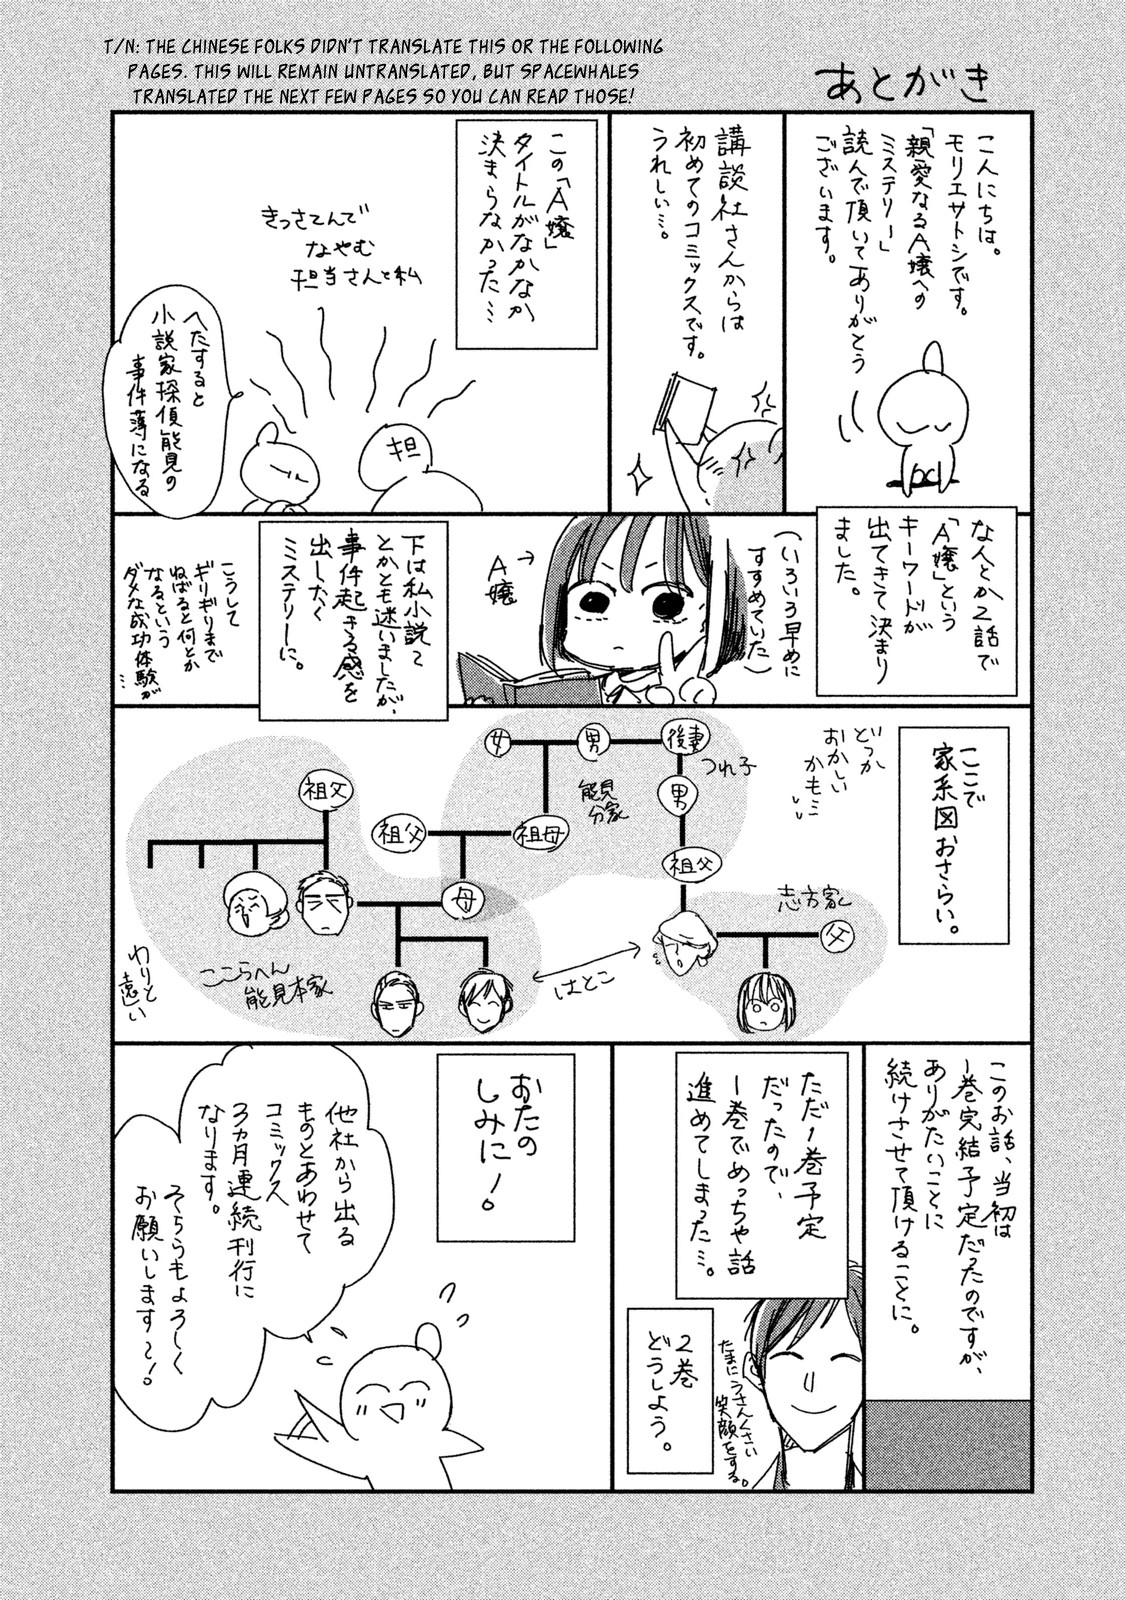 T/N: THE CHINESE FOLKS DIDN'T TRANSLATE THIS OR THE FOLLOWING
PAGES. THIS WILL REMAIN UNTRANSLATED, BUT SPACEWHALES
TRANSLATED THE NEXT FEW PAGES SO YOU CAN READ THOSE!
あとがき
こんにちは。
モリエサトシです。
「親愛なるA嬢への
ミステリー」
読んで頂いてありがとう
ございます。
講談社さんからは
初めてのコミックスです。
うれしい…。
この「A嬢」
タイトルがなかなか
決まらなかった…
きっさてんで
なやむ
担当さんと私
担
へたすると
小説家探偵能見の
事件薄になる
なんとか2話で
「A嬢」という
キーワードが
出てきて決まり
ました。
(いろいろ早めに
すすめていた)
A嬢→
下は私小説て
とかとも迷いましたが、
事件起きる感を
出したく
ミステリーに。
こうして
ギリギリまで
ねばると何とか
なるという
ダメな成功体験が…
ここで
家系図おさらい。
どっか
おかしい
かも…
女
男
後妻
つれ子
能見
分家
男
祖父
祖父
祖母
祖父
母
志方家
父
はとこ
ここらへん
能見本家
わりと
遠い
このお話、当初は
1巻完結予定だったのですが、
ありがたいことに
続けさせて頂けることに。
ただ1巻予定
だったので、
1巻でめっちゃ話
進めてしまった…。
2巻
どうしよう。
たまにうさんくさい
笑顔をする。
おたの
しみに!
他社から出る
ものとあわせて
コミックス
3カ月連続刊行に
なります。
そちらもよろしく
お願いします〜!